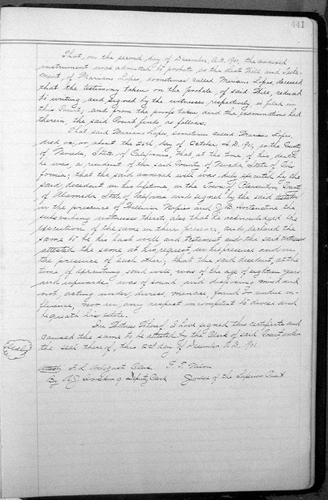 441
That, on the second day of December, A.D. 1901, the annexed
instrument was admitted to probate, as the last Will and Testa-
ment, of Mariano Lopes, sometimes called Mariano Lopes, deceased
that the testimony taken on the probate, of said Will, reduced
to writing, and signed by the witnesses, respectively is filed in
this Court, and from the proofs taken and the examinations had
therein, the said Court finds as follows:
That said Mariano Lopes, sometimes called Mariano Lopes,
died on or about the 20th day of October A.D. 1901, in the County
of Nevada, State of California, that, at the time of his death
he was a resident of the said County of Nevada State of Cali-
fornia; that the said annexed will was duly executed by the
said decedent in his lifetime, in the Town of County
of Alameda State of California and signed by the said testator
in the presence of and J. B. the
subscribing witnesses thereto, also that he acknowledged the
execution of the same in their presence, and declared the
same to be his last will and testament and the said witnesses
attested the same at his request, in his presence and in
the presence of each other; that the said decedent at the
time of executing said will, was of the age of eighteen years
and upwards, was of sound and disposing mind and
not acting under duress, menace, fraud, or undue in-
fluence, nor in any respect incompetent to devise and
bequeath his estate.
In Witness Whereof, I have signed this certificate and
caused the same to be attested by the Clerk of said Court under
the seal thereof, this 2nd day of December A.D. 1901
(Seal)
Attest: F. L. Arbogast Clerk F. T. Nilon
By Deputy Clerk Judge of the Superior Court